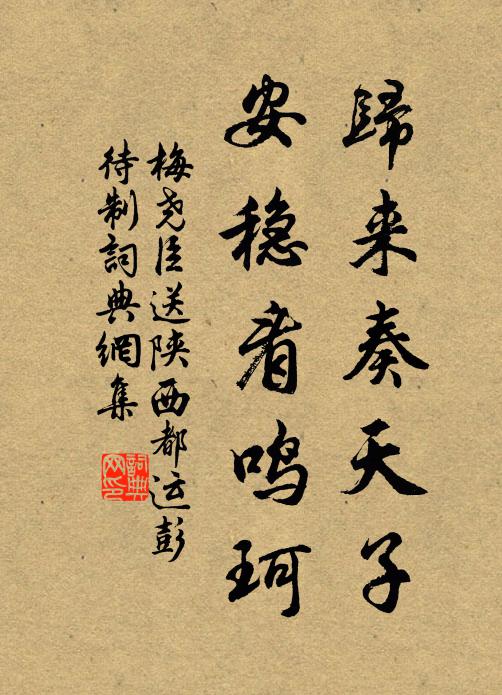 歸来奏天子
安穏看鳴珂
梅尧臣送陝西都运彭
待制詞典網集
詞典
网印